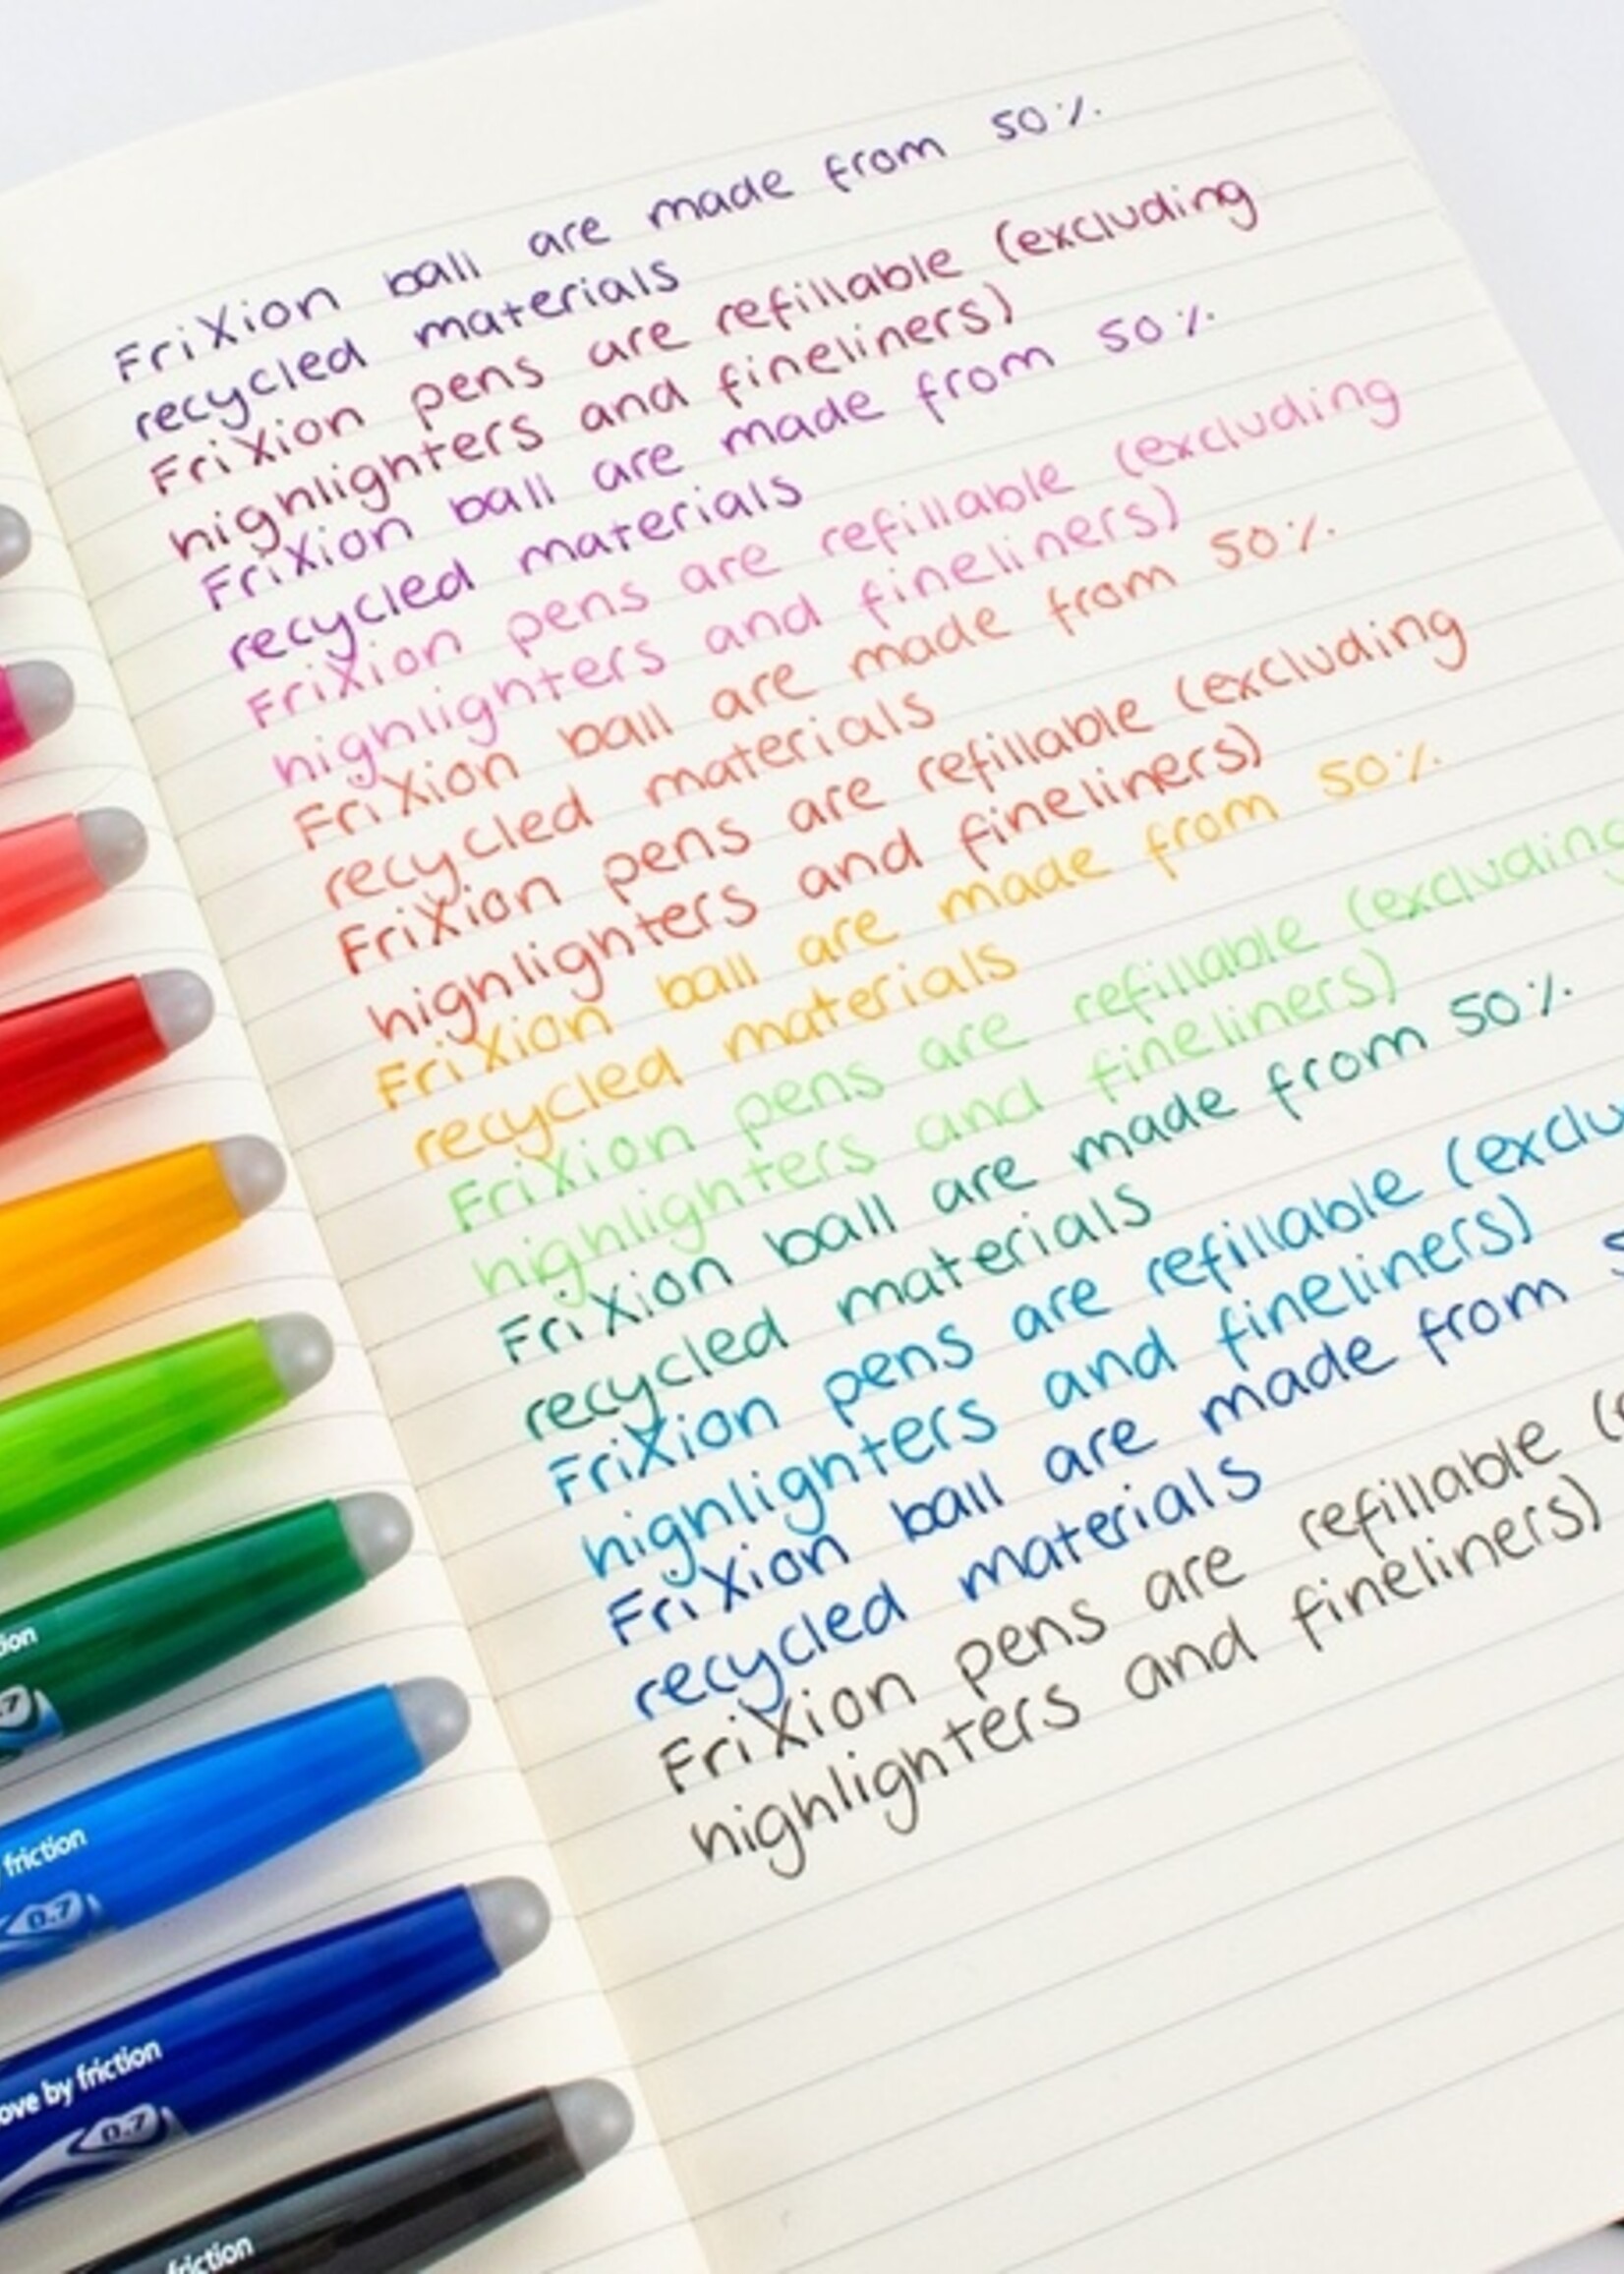 FriXion ball are made from 50%
recycled materials
FriXion pens are refillable (excluding
highlighters and fineliners)
FriXion ball are made from 50%
recycled materials
FriXion pens are refillable (excluding
highlighters and fineliners)
FriXion ball are made from 50%
recycled materials
FriXion pens are refillable (excluding
highlighters and fineliners)
FriXion ball are made from 50%
recycled materials
FriXion pens are refillable (excluding
highlighters and fineliners)
FriXion ball are made from 50%
recycled materials
FriXion pens are refillable (exclu
highlighters and fineliners)
FriXion ball are made from
recycled materials
FriXion pens are refillable (
highlighters and fineliners)
friction
0.7
ove by friction
0.7
friction